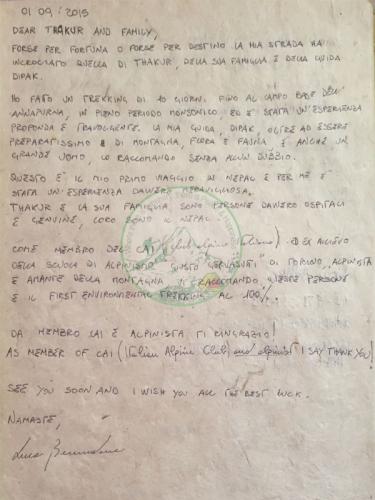 01/09/2015
DEAR THAKUR AND FAMILY,
FORSE PER FORTUNA O FORSE PER DESTINO LA MIA STRADA HA
INCROCIATO QUELLA DI THAKUR, DELLA SUA FAMIGLIA E DELLA GUIDA
DIPAK.
HO FATO UN TREKKING DI 10 GIORNI FINO AL CAMPO BASE DELL'
ANNAPURNA, IN PIENO PERIODO MONSONICO ED E' STATA UN'ESPERIENZA
PROFONDA E TRAVOLGENTE. LA MIA GUIDA, DIPAK, OLTRE AD ESSERE
PREPARATISSIMO DI MONTAGNA, FLORA E FAUNA, E ANCHE UN
GRANDE UOMO, LO RACCOMANDO SENZA ALCUN DUBBIO.
QUESTO E' IL MIO PRIMO VIAGGIO IN NEPAL E PER ME E'
STATA UN'ESPERIENZA DAVVERO MERAVIGLIOSA.
THAKUR E LA SUA FAMIGLIA SONO PERSONE DAVVERO OSPITALI
E GENUINE, LORO SONO IL NEPAL.
COME MEMBRO DEL CAI (club alpino italiano) ED EX ALLIEVO
DELLA SCUOLA DI ALPINISMO "GIUSTO GERVASUTTI" DI TORINO, ALPINISTA
E AMANTE DELLA MONTAGNA RACCOMANDO QUESTE PERSONE
E IL FIRST ENVIRONMENTAL TREKKING AL 100%.
DA MEMBRO CAI E ALPINISTA TI RINGRAZIO!
AS MEMBER OF CAI (Italian Alpine Club) and alpinist I SAY THANK YOU!
SEE YOU SOON AND I WISH YOU ALL THE BEST LUCK.
NAMASTE,
Luca